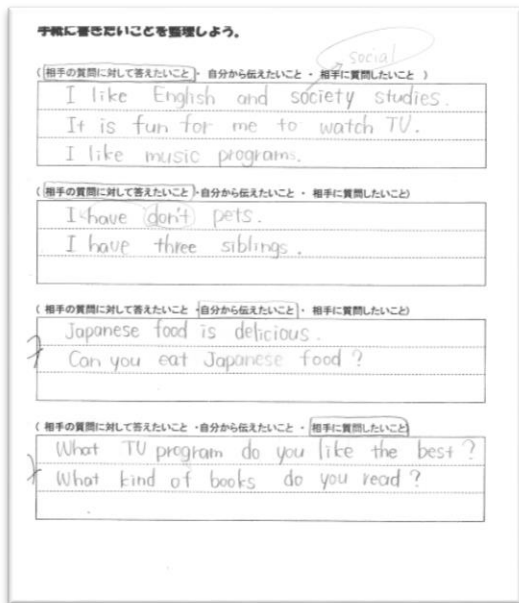 手紙に書きたいことを整理しよう。
social
( 相手の質問に対して答えたいこと ・ 自分から伝えたいこと ・ 相手に質問したいこと )
I like English and society studies.
It is fun for me to watch TV.
I like music programs.
( 相手の質問に対して答えたいこと ・自分から伝えたいこと ・ 相手に質問したいこと)
I have don't pets.
I have three siblings.
( 相手の質問に対して答えたいこと ・自分から伝えたいこと ・ 相手に質問したいこと)
Japanese food is delicious.
Can you eat Japanese food?
( 相手の質問に対して答えたいこと ・自分から伝えたいこと ・ 相手に質問したいこと)
What TV program do you like the best?
What kind of books do you read?